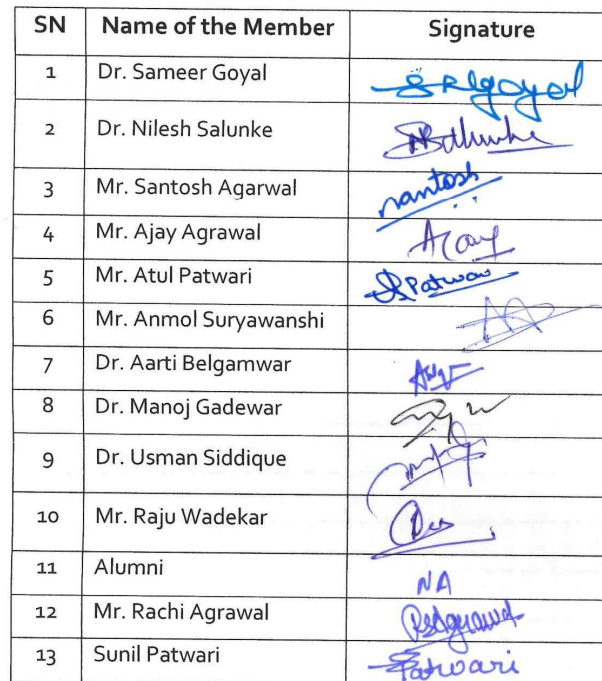 SN Name of the Member Signature
1 Dr. Sameer Goyal SRlgoyal
2 Dr. Nilesh Salunke NBSalunke
3 Mr. Santosh Agarwal santosh
4 Mr. Ajay Agrawal
5 Mr. Atul Patwari Patwari
6 Mr. Anmol Suryawanshi
7 Dr. Aarti Belgamwar
8 Dr. Manoj Gadewar
9 Dr. Usman Siddique
10 Mr. Raju Wadekar
11 Alumni NA
12 Mr. Rachi Agrawal RSAgrawal
13 Sunil Patwari SPatwari